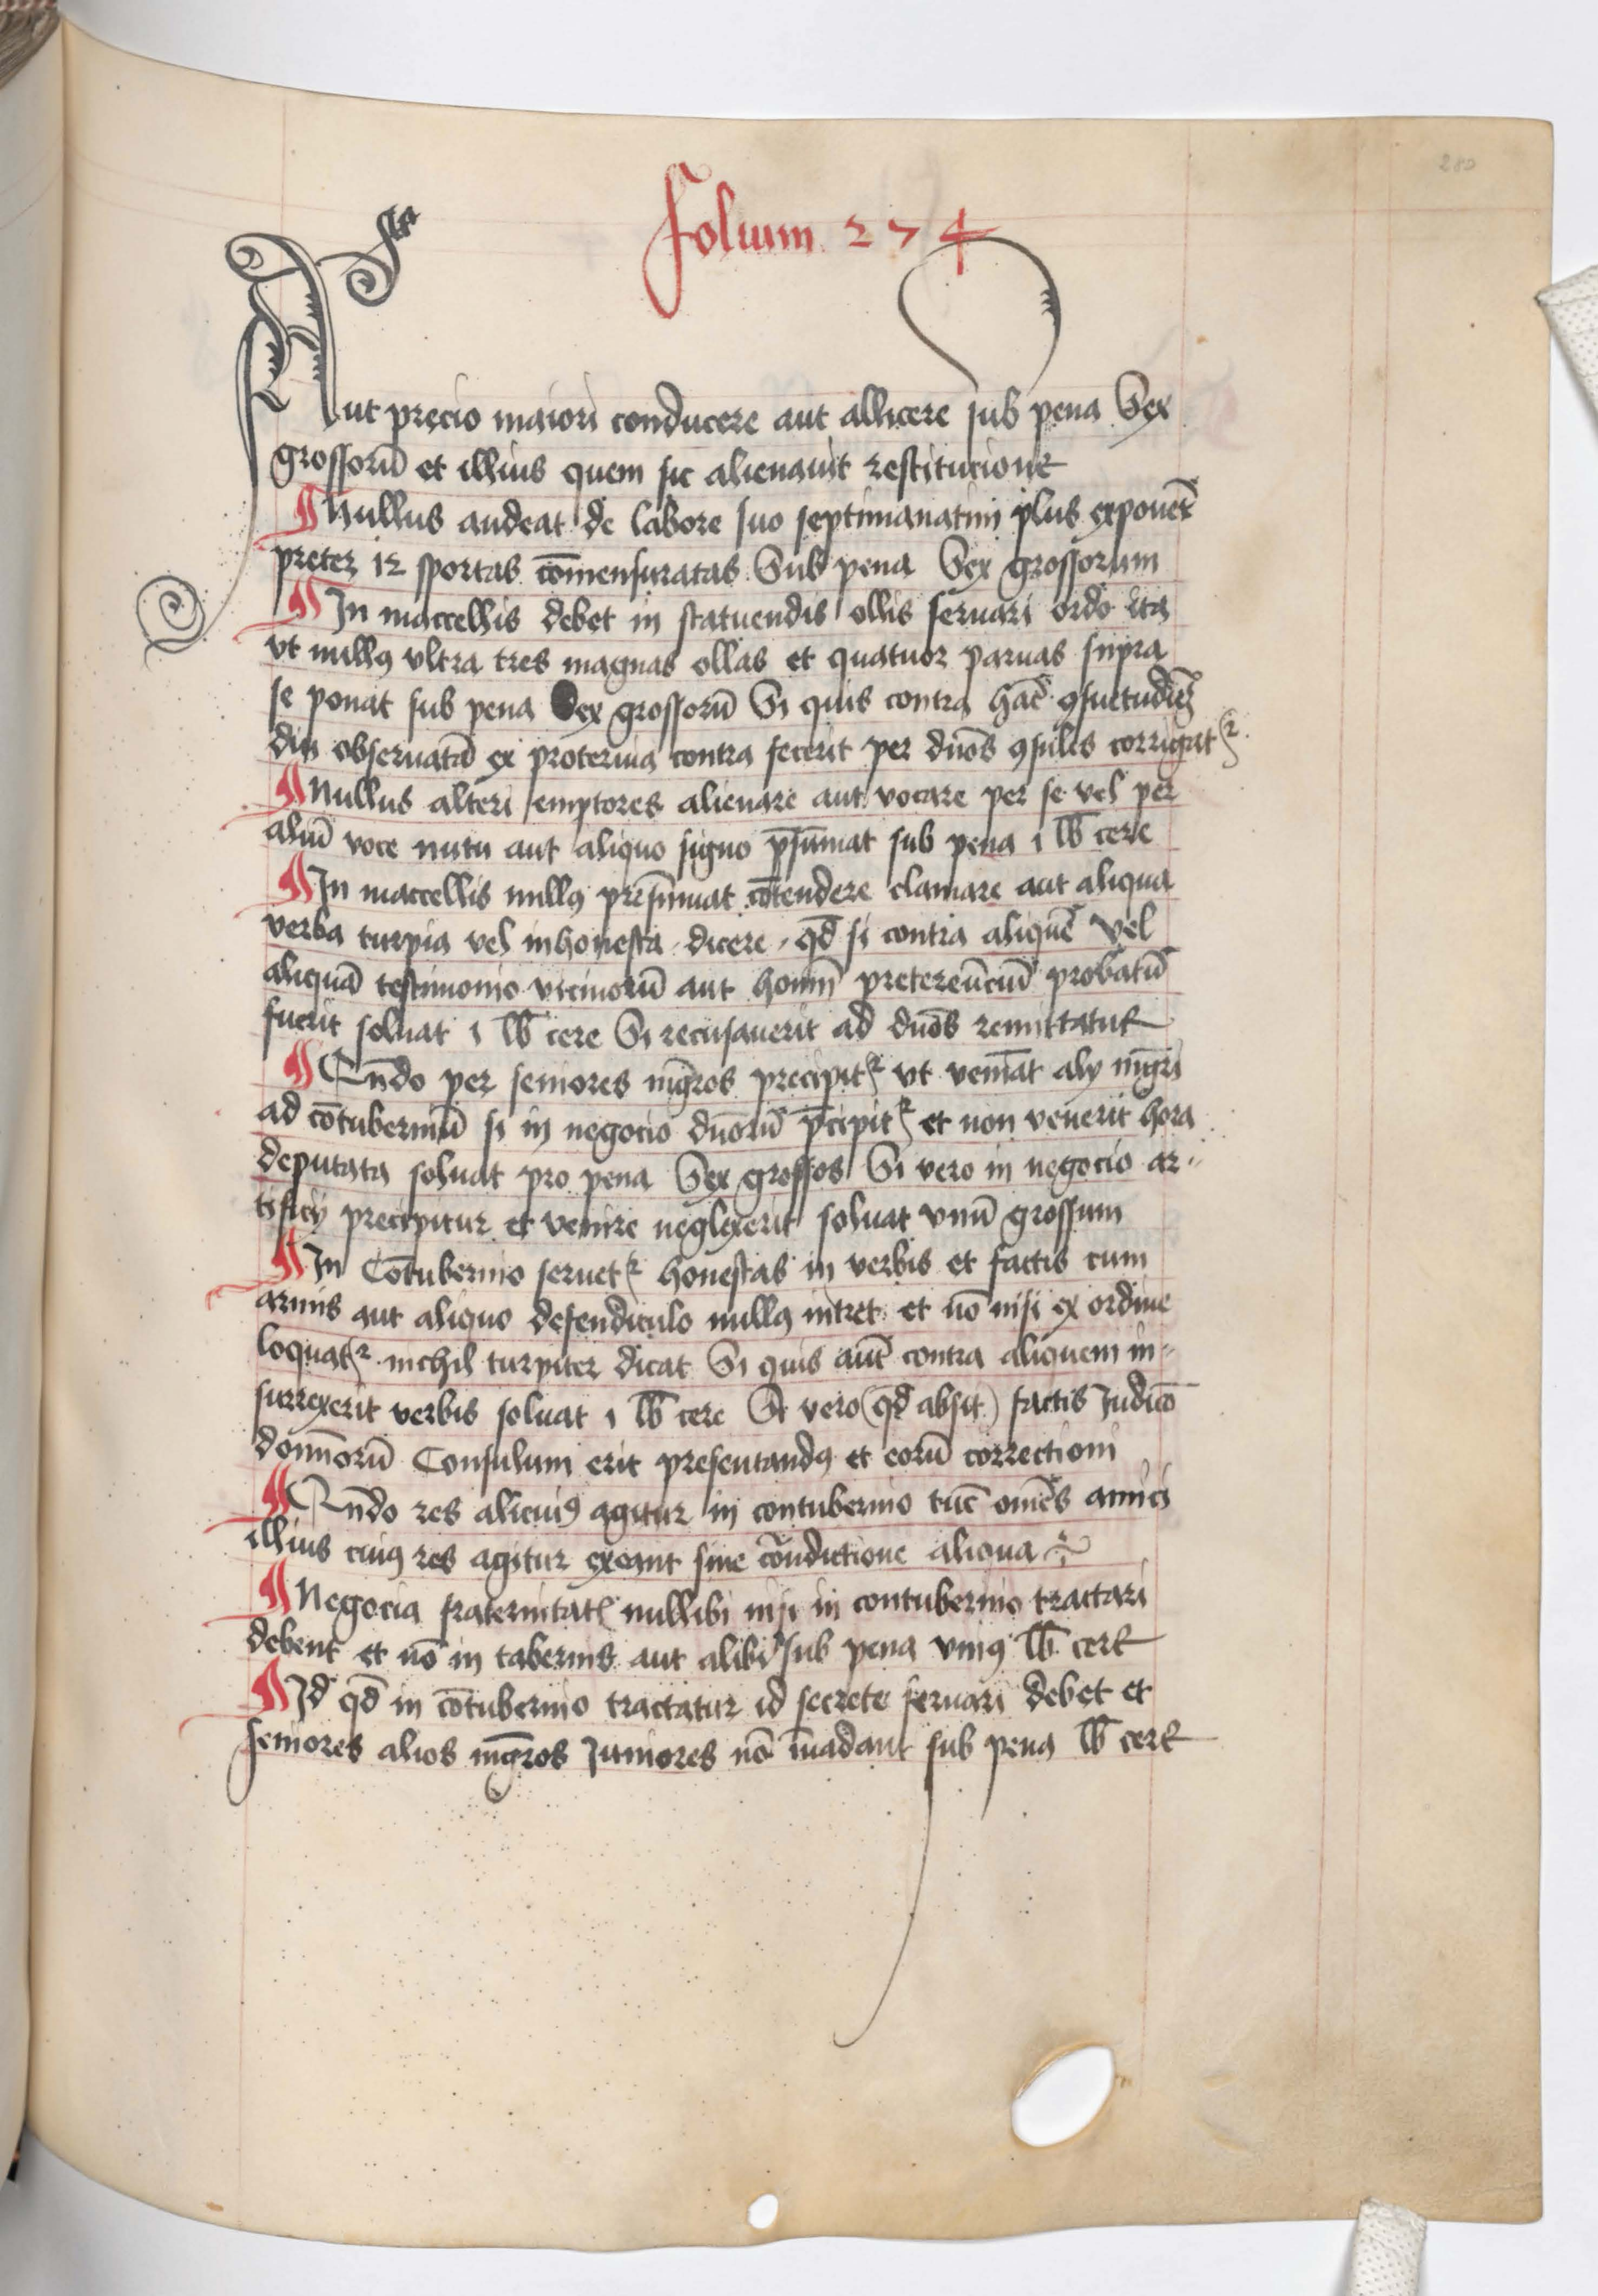 280
Folium 274
Aut precio maiori conducere aut allicere sub pena Sex
grossorū et illius quem sic alienauit restitucione
¶ Nullus audeat de labore suo septimanatim plus exponer̄
preter 12 sportas cōmensuratas Sub pena Sex grossorum
¶ In maccellis debet in statuendis ollis seruari ordo ita
vt nullꝯ vltra tres magnas ollas et quatuor paruas supra
se ponat sub pena Sex grossorū Si quis contra hāc ꝯsuetudīeʒ
diu obseruatā ex proteruia contra fecerit per dūos ꝯsules corrigatʳ
¶ Nullus alteri emptores alienare aut vocare per se vel per
aliū voce nutu aut aliquo signo p̄sūmat sub pena 1 lb̄ cere
¶ In maccellis nullꝯ presūmat cōtendere clamare aut aliqua
verba turpia vel inhonesta dicere, qd̄ si contra aliquē vel
aliquā testimonio vicinorū aut homīn̄ pretereūciū probatū
fuerit soluat 1 lb̄ cere Si recusauerit ad dūos remittatur
¶ Qn̄do per seniores mḡros precipitʳ vt veniāt alij mḡri
ad cōtuberniū si in negocio dūorū p̄cipitʳ et non venerit hora
deputata soluat pro pena Sex grossos Si vero in negocio ar-
tificij precipitur et venire neglexerit soluat vnū grossum
¶ In Cōtubernio seruetʳ honestas in verbis et factis cum
armis aut aliquo defendiculo nullꝯ intret et nō nisi ex ordine
loquatʳ nichil turpiter dicat Si quis aūt contra aliquem in-
surrexerit verbis soluat 1 lb̄ cere Si vero (qd̄ absit) factis Judicio
domīnorū Consulum erit presentandꝯ et eorū correctioni
¶ Qn̄do res alicuiꝯ agitur in contubernio tūc om̄es amici
illius cuiꝯ res agitur exeant sine cōndictione aliqua
¶ Negocia fraternitatꝭ nullibi nisi in contubernio tractari
debent et nō in tabernis aut alibi sub pena vniꝯ lb̄ cere
¶ Id qd̄ in cōtubernio tractatur id secrete seruari debet et
seniores alios mḡros Juniores nō īuadant sub pena lb̄ cere